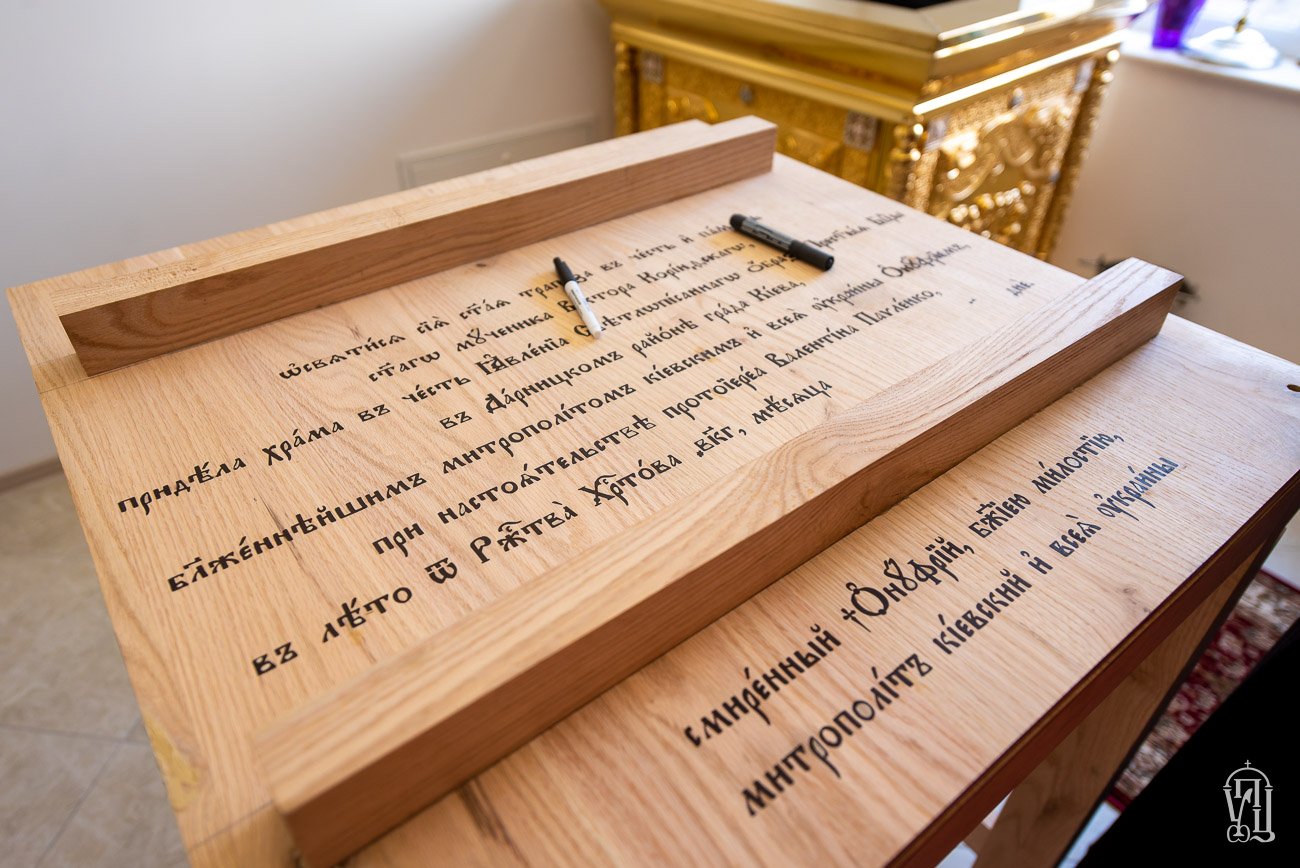 ѡ҆свати́сѧ сїѧ̀ ст҃а́ѧ въ че́сть и҆
ст҃а́гѡ мꙋ́ченика Ви́ктора Корі́нѳскагѡ,
придѣ́ла хра́ма въ че́сть Ꙗ҆вле́нїѧ Свѣтлопи́саннагѡ Пречⷭ҇тыѧ
въ Да́рницкомъ райо́нѣ гра́да Кі́ева,
бл҃же́ннѣйшимъ митрополі́томъ кі́евскимъ и҆ всеѧ̀ ѹ҆краи́ны Ѻ҆нꙋ́фрїемъ,
при настоѧ́тельствѣ протоїере́а Валенти́на Паꙋле́нко,
въ лѣ́то ѿ Рж҃тва̀ Хрⷭ҇то́ва ҂вк҃г, мѣ́сѧца дне.
смире́нный †Ѻ҆нꙋ́фрїй, бж҃їею ми́лостїю,
митрополі́тъ кі́евский и҆ всеѧ̀ ѹ҆краи́ны